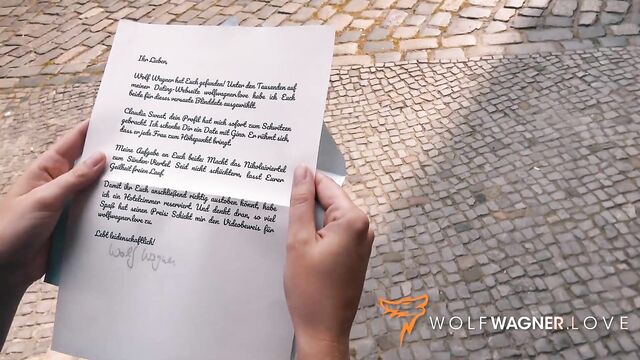 Ihr Lieben,
Wolf Wagner hat Euch gefunden! Unter den Tausenden auf
meiner Dating-Webseite wolfwagner.love habe ich Euch
beide für dieses versaute Blinddate ausgewählt.
Claudia Swea, dein Profil hat mich sofort zum Schwitzen
gebracht. Ich schenke Dir ein Date mit Gino. Er rühmt sich,
dass er jede Frau zum Höhepunkt bringt.
Meine Aufgabe an Euch beide: Macht das Nikolaiviertel
zum Sünden-Viertel. Seid nicht schüchtern, lasst Eurer
Geilheit freien Lauf.
Damit ihr Euch anschließend richtig austoben könnt, habe
ich ein Hotelzimmer reserviert. Und denkt dran, so viel
Spaß hat seinen Preis: Schickt mir den Videobeweis für
wolfwagner.love zu.
Lebt leidenschaftlich!
Wolf Wagner
WOLFWAGNER.LOVE